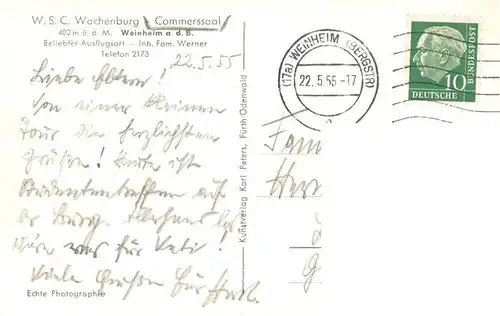 W. S. C. Wachenburg Commerssaal
402m ü. d. M. Weinheim a. d. B.
Beliebter Ausflugsort - Inh. Fam. Werner
Telefon 2173
22.5.55
Liebe Eltern!
Von einer kleinen
Tour die herzlichsten
Grüße! Heute ist
Studententreffen auf
der Burg.
Wäre was für Vati!
Viele Grüße
Echte Photographie
Kunstverlag Karl Peters, Fürth Odenwald
(17a) WEINHEIM (BERGSTR)
22.5.55-17
a
10
DEUTSCHE
BUNDESPOST
Fam
Her
G